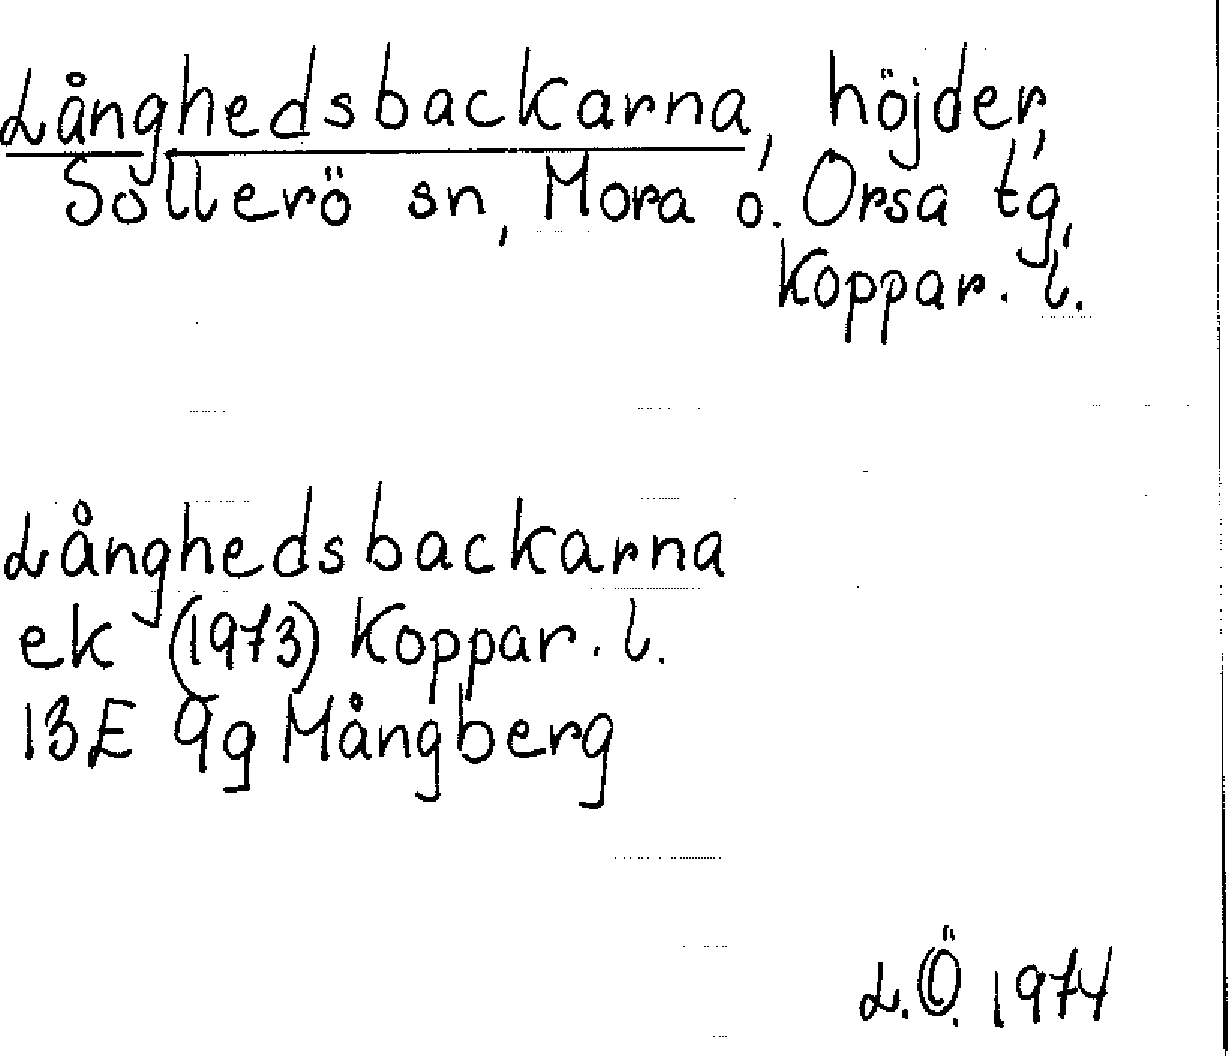 Långhedsbackarna, höjder,
Sollerö sn, Mora o. Orsa tg,
Koppar. l.
Långhedsbackarna
ek (1973) Koppar. l.
13E 9g Mångberg
L.Ö. 1974